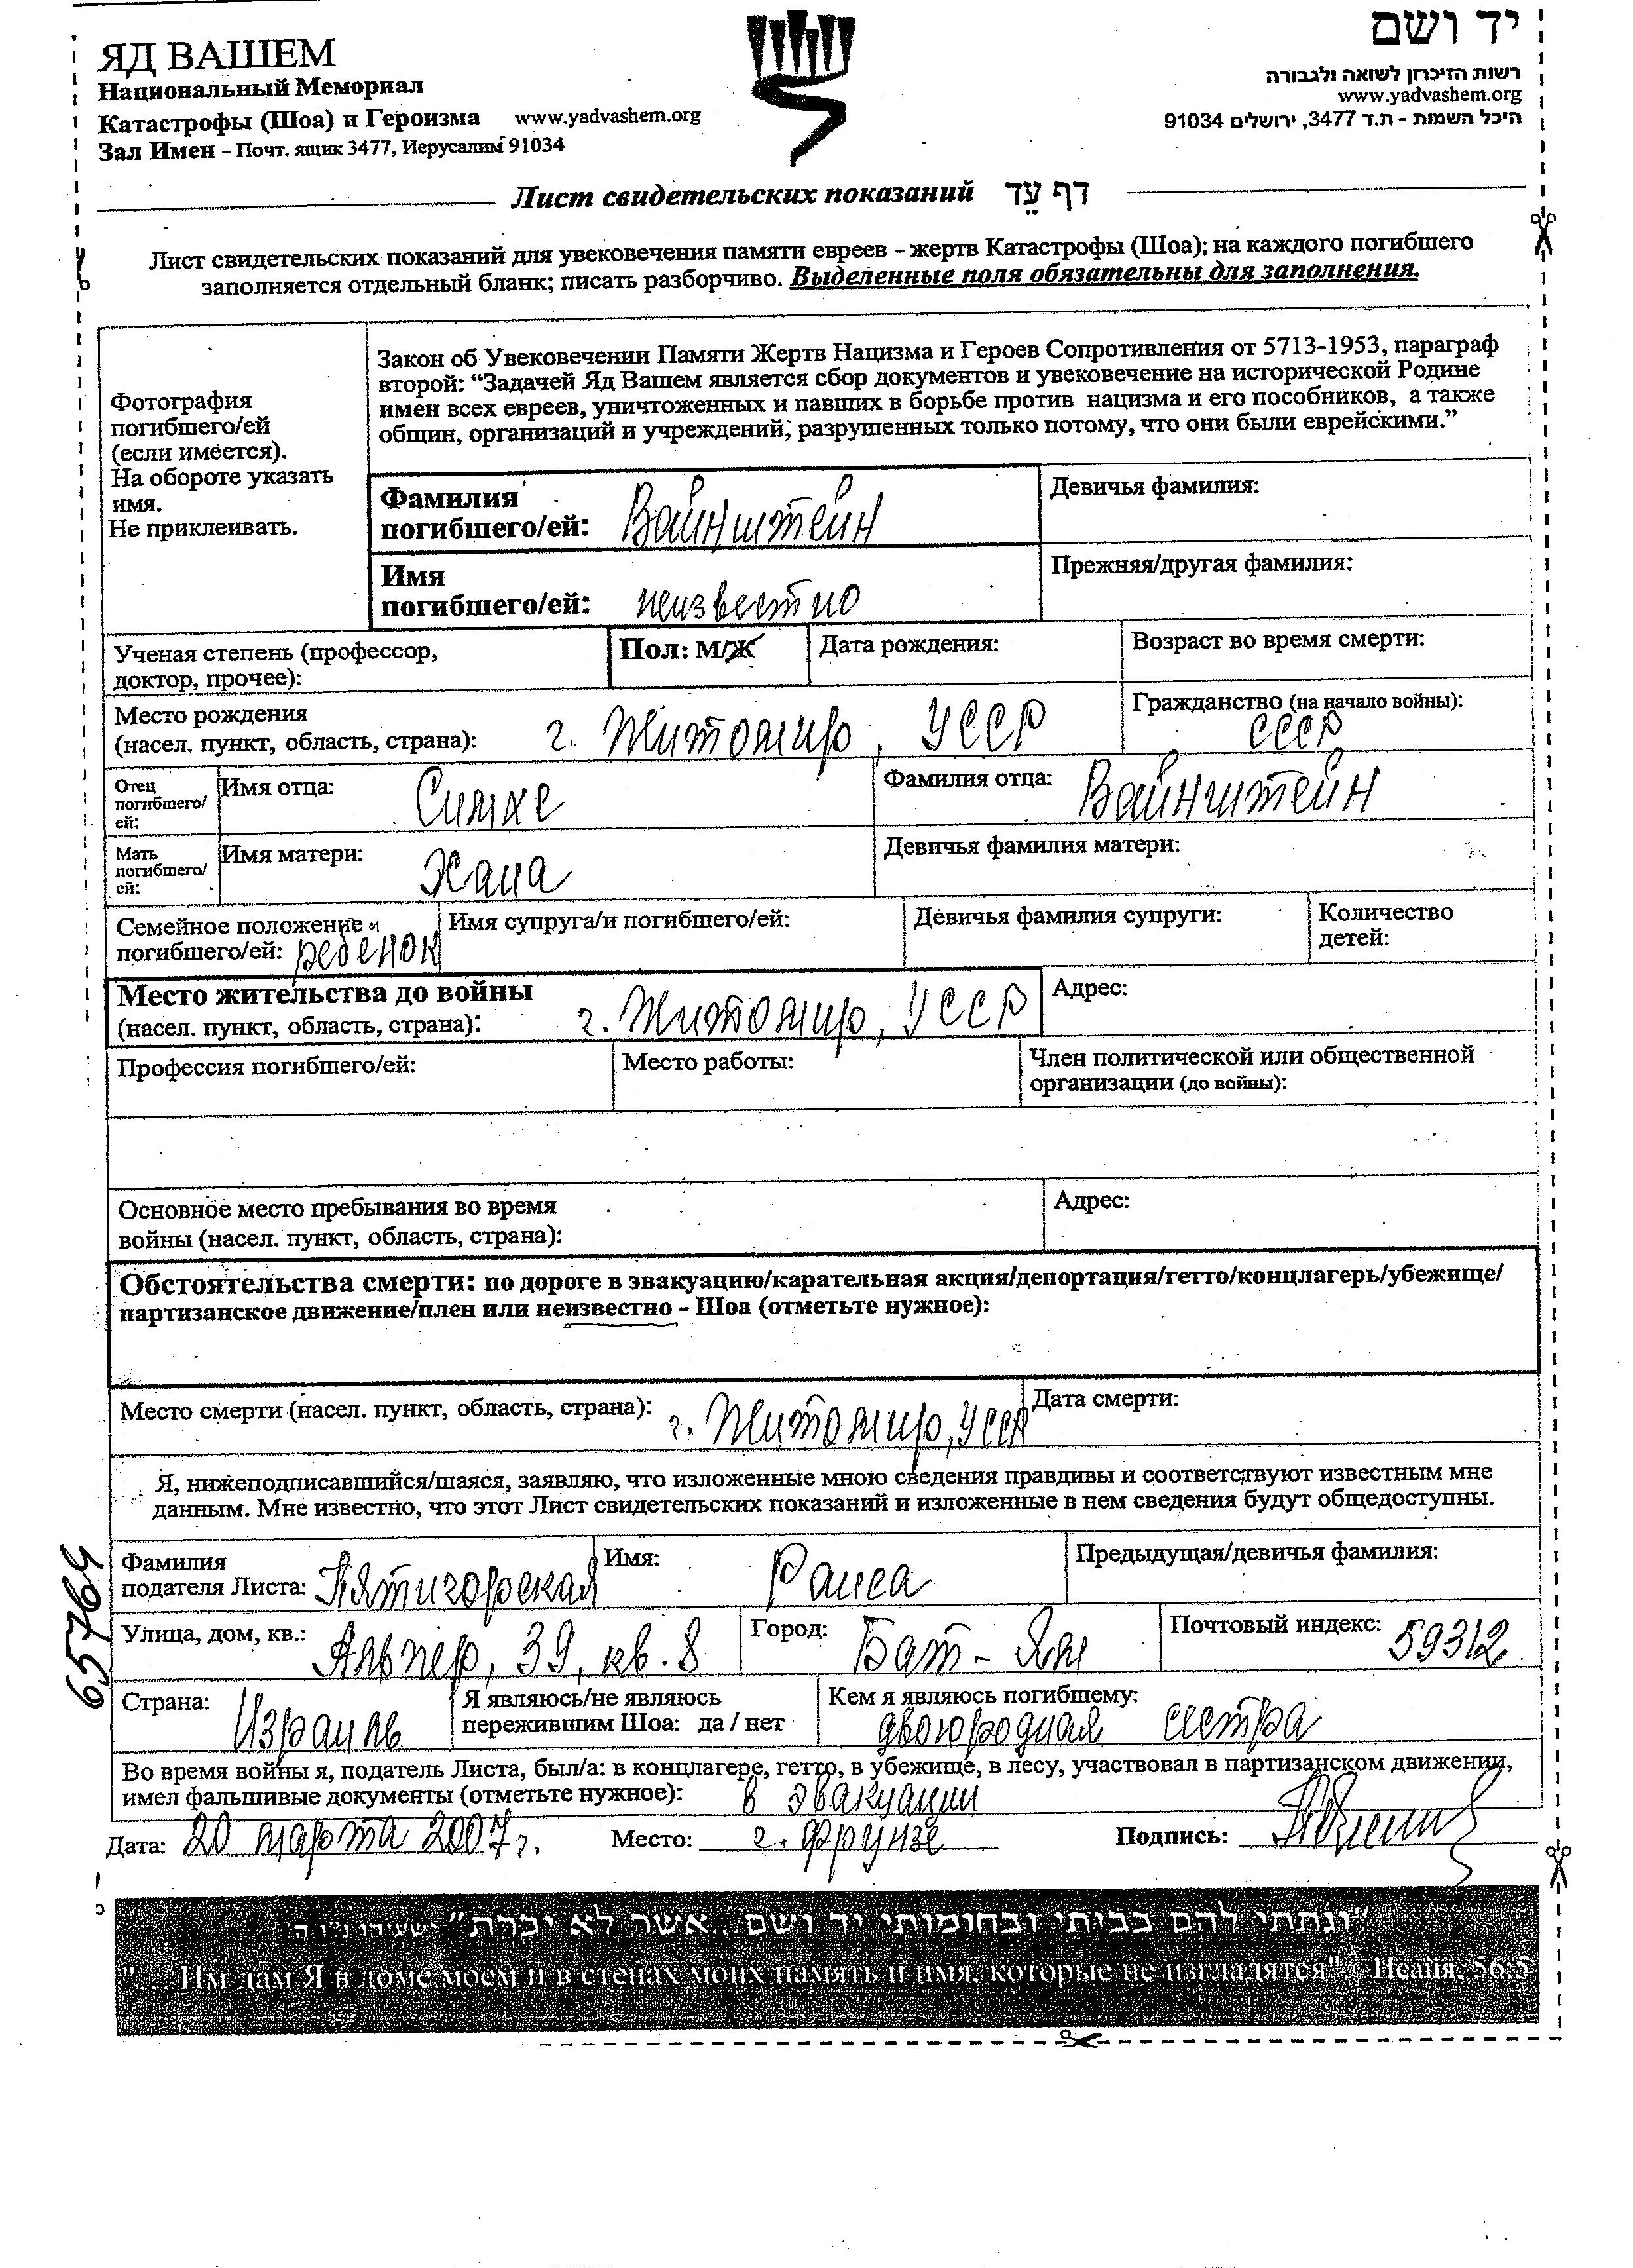 ЯД ВАШЕМ
Национальный Мемориал
Катастрофы (Шоа) и Героизма www.yadvashem.org
Зал Имен - Почт. ящик 3477, Иерусалим 91034
יד ושם
רשות הזיכרון לשואה ולגבורה
www.yadvashem.org
היכל השמות - ת.ד 3477, ירושלים 91034
Лист свидетельских показаний דף עֵד
Лист свидетельских показаний для увековечения памяти евреев - жертв Катастрофы (Шоа); на каждого погибшего
заполняется отдельный бланк; писать разборчиво. Выделенные поля обязательны для заполнения.
Фотография
погибшего/ей
(если имеется).
На обороте указать
имя.
Не приклеивать.
Закон об Увековечении Памяти Жертв Нацизма и Героев Сопротивления от 5713-1953, параграф
второй: “Задачей Яд Вашем является сбор документов и увековечение на исторической Родине
имен всех евреев, уничтоженных и павших в борьбе против нацизма и его пособников, а также
общин, организаций и учреждений, разрушенных только потому, что они были еврейскими.”
Фамилия
погибшего/ей: Вайнштейн
Девичья фамилия:
Имя
погибшего/ей: неизвестно
Прежняя/другая фамилия:
Ученая степень (профессор,
доктор, прочее):
Пол: М/Ж
Дата рождения:
Возраст во время смерти:
Место рождения
(насел. пункт, область, страна): г. Житомир, УССР
Гражданство (на начало войны):
СССР
Отец
погибшего/
ей:
Имя отца: Симхе
Фамилия отца: Вайнштейн
Мать
погибшего/
ей:
Имя матери: Хана
Девичья фамилия матери:
Семейное положение
погибшего/ей: ребенок
Имя супруга/и погибшего/ей:
Девичья фамилия супруги:
Количество
детей:
Место жительства до войны
(насел. пункт, область, страна): г. Житомир, УССР
Адрес:
Профессия погибшего/ей:
Место работы:
Член политической или общественной
организации (до войны):
Основное место пребывания во время
войны (насел. пункт, область, страна):
Адрес:
Обстоятельства смерти: по дороге в эвакуацию/карательная акция/депортация/гетто/концлагерь/убежище/
партизанское движение/плен или неизвестно - Шоа (отметьте нужное):
Место смерти (насел. пункт, область, страна): г. Житомир, УССР
Дата смерти:
Я, нижеподписавшийся/шаяся, заявляю, что изложенные мною сведения правдивы и соответствуют известным мне
данным. Мне известно, что этот Лист свидетельских показаний и изложенные в нем сведения будут общедоступны.
65764
Фамилия
подателя Листа: Пятигорская
Имя: Раиса
Предыдущая/девичья фамилия:
Улица, дом, кв.: Альпер, 39, кв. 8
Город: Бат-Ям
Почтовый индекс: 59312
Страна: Израиль
Я являюсь/не являюсь
пережившим Шоа: да / нет
Кем я являюсь погибшему:
двоюродная сестра
Во время войны я, податель Листа, был/а: в концлагере, гетто, в убежище, в лесу, участвовал в партизанском движении,
имел фальшивые документы (отметьте нужное): в эвакуации
Дата: 20 марта 2007 г. Место: г. Фрунзе Подпись:
"ונתתי להם בביתי ובחומותי יד ושם...אשר לא יכרת" ישעיהו נ"ו ה
"...Им дам Я в доме моем и в стенах моих память и имя, которые не изгладятся" Исайя, 56:5